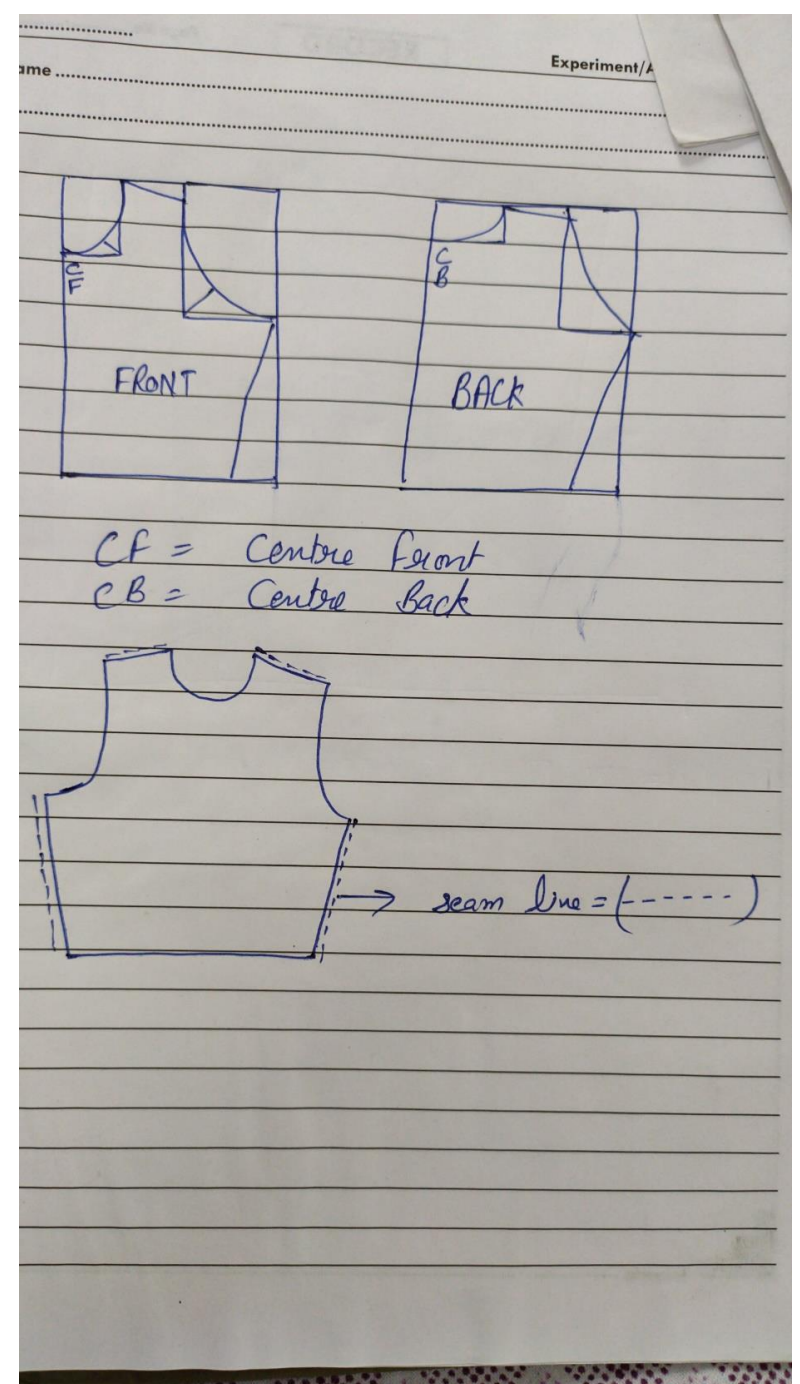 Experiment/A
ame
CF
CB
FRONT
BACK
CF = Centre Front
CB = Centre Back
seam line = (------)